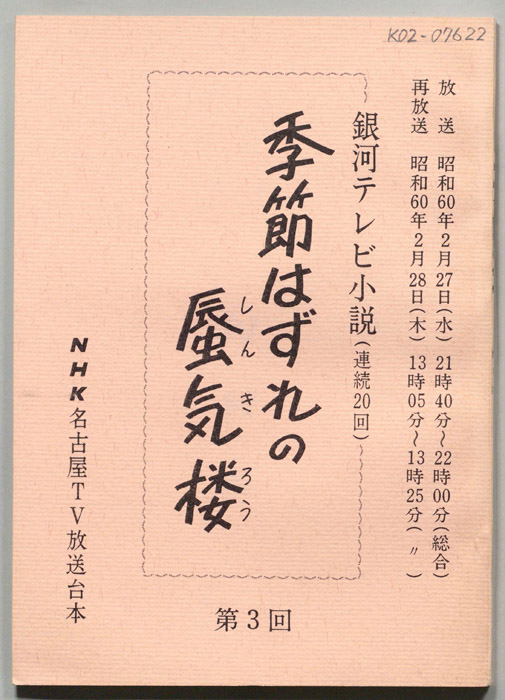 K02-07622
放送 昭和60年2月27日(水) 21時40分~22時00分(総合)
再放送 昭和60年2月28日(木) 13時05分~13時25分(〃)
銀河テレビ小説(連続20回)
季節はずれの
蜃気楼
しんきろう
NHK名古屋TV放送台本
第3回